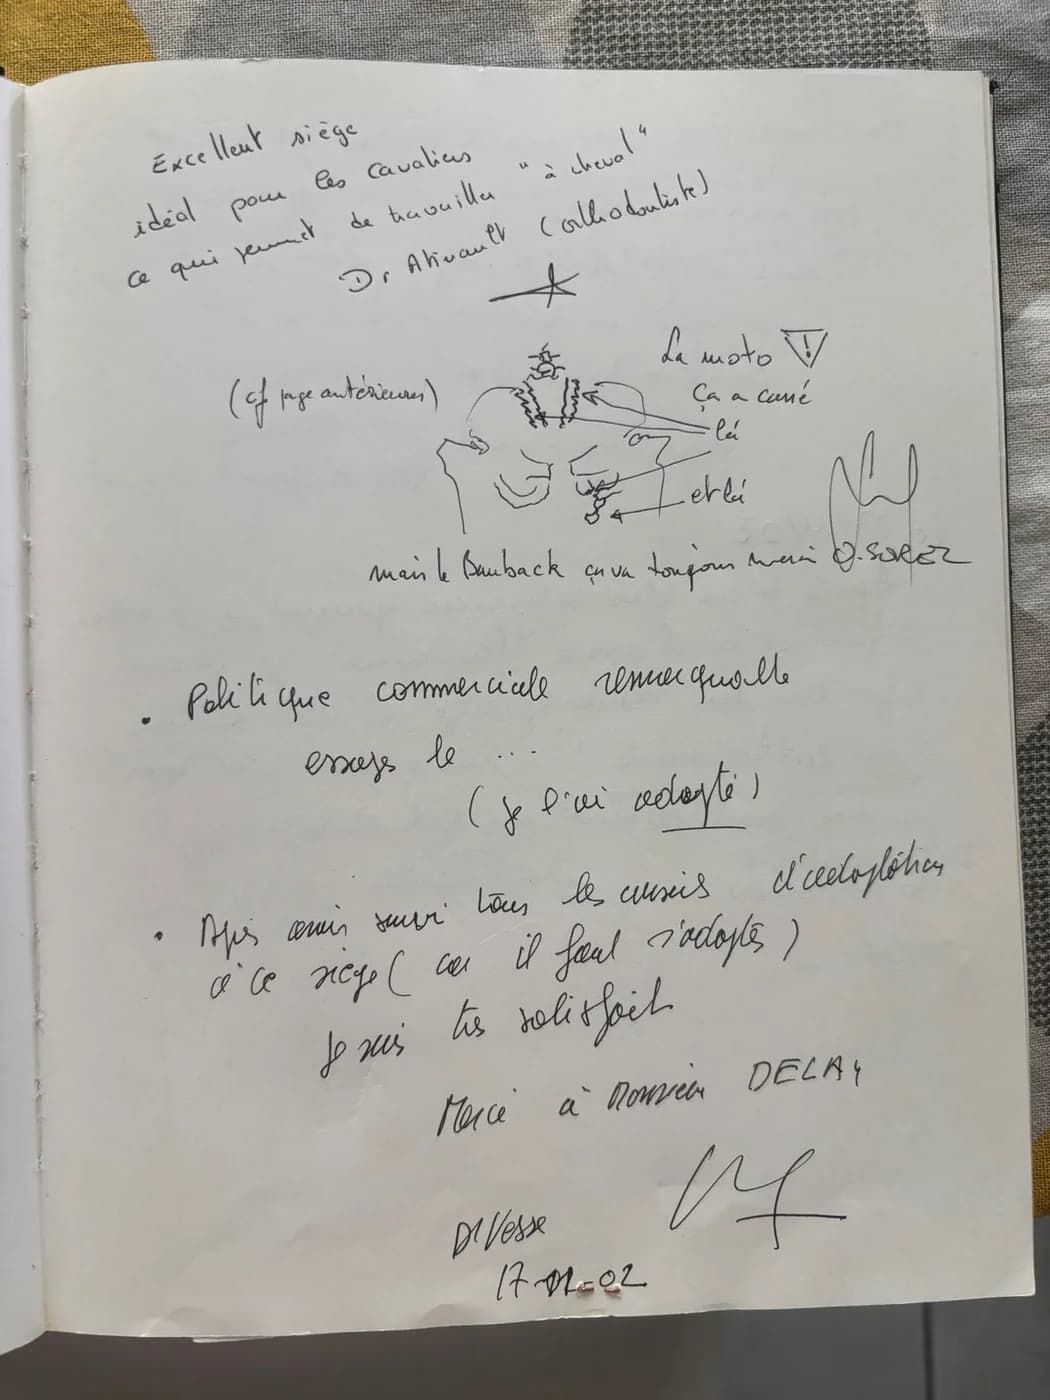 Excellent siège
idéal pour les cavaliers
ce qui permet de travailler "à cheval"
Dr (orthodontiste)
La moto !
(cf page antérieures)
Ça a cassé
là
et là
mais le Bamback ça va toujours merci O. SOREZ
• Politique commerciale remarquable
essayes le ...
(je l'ai adopté)
• Après avoir suivi tous les conseils d'adaptation
à ce siège (car il faut s'adapter)
je suis très satisfait
Merci à Monsieur DELAY
Dr Vesse
17-01-02